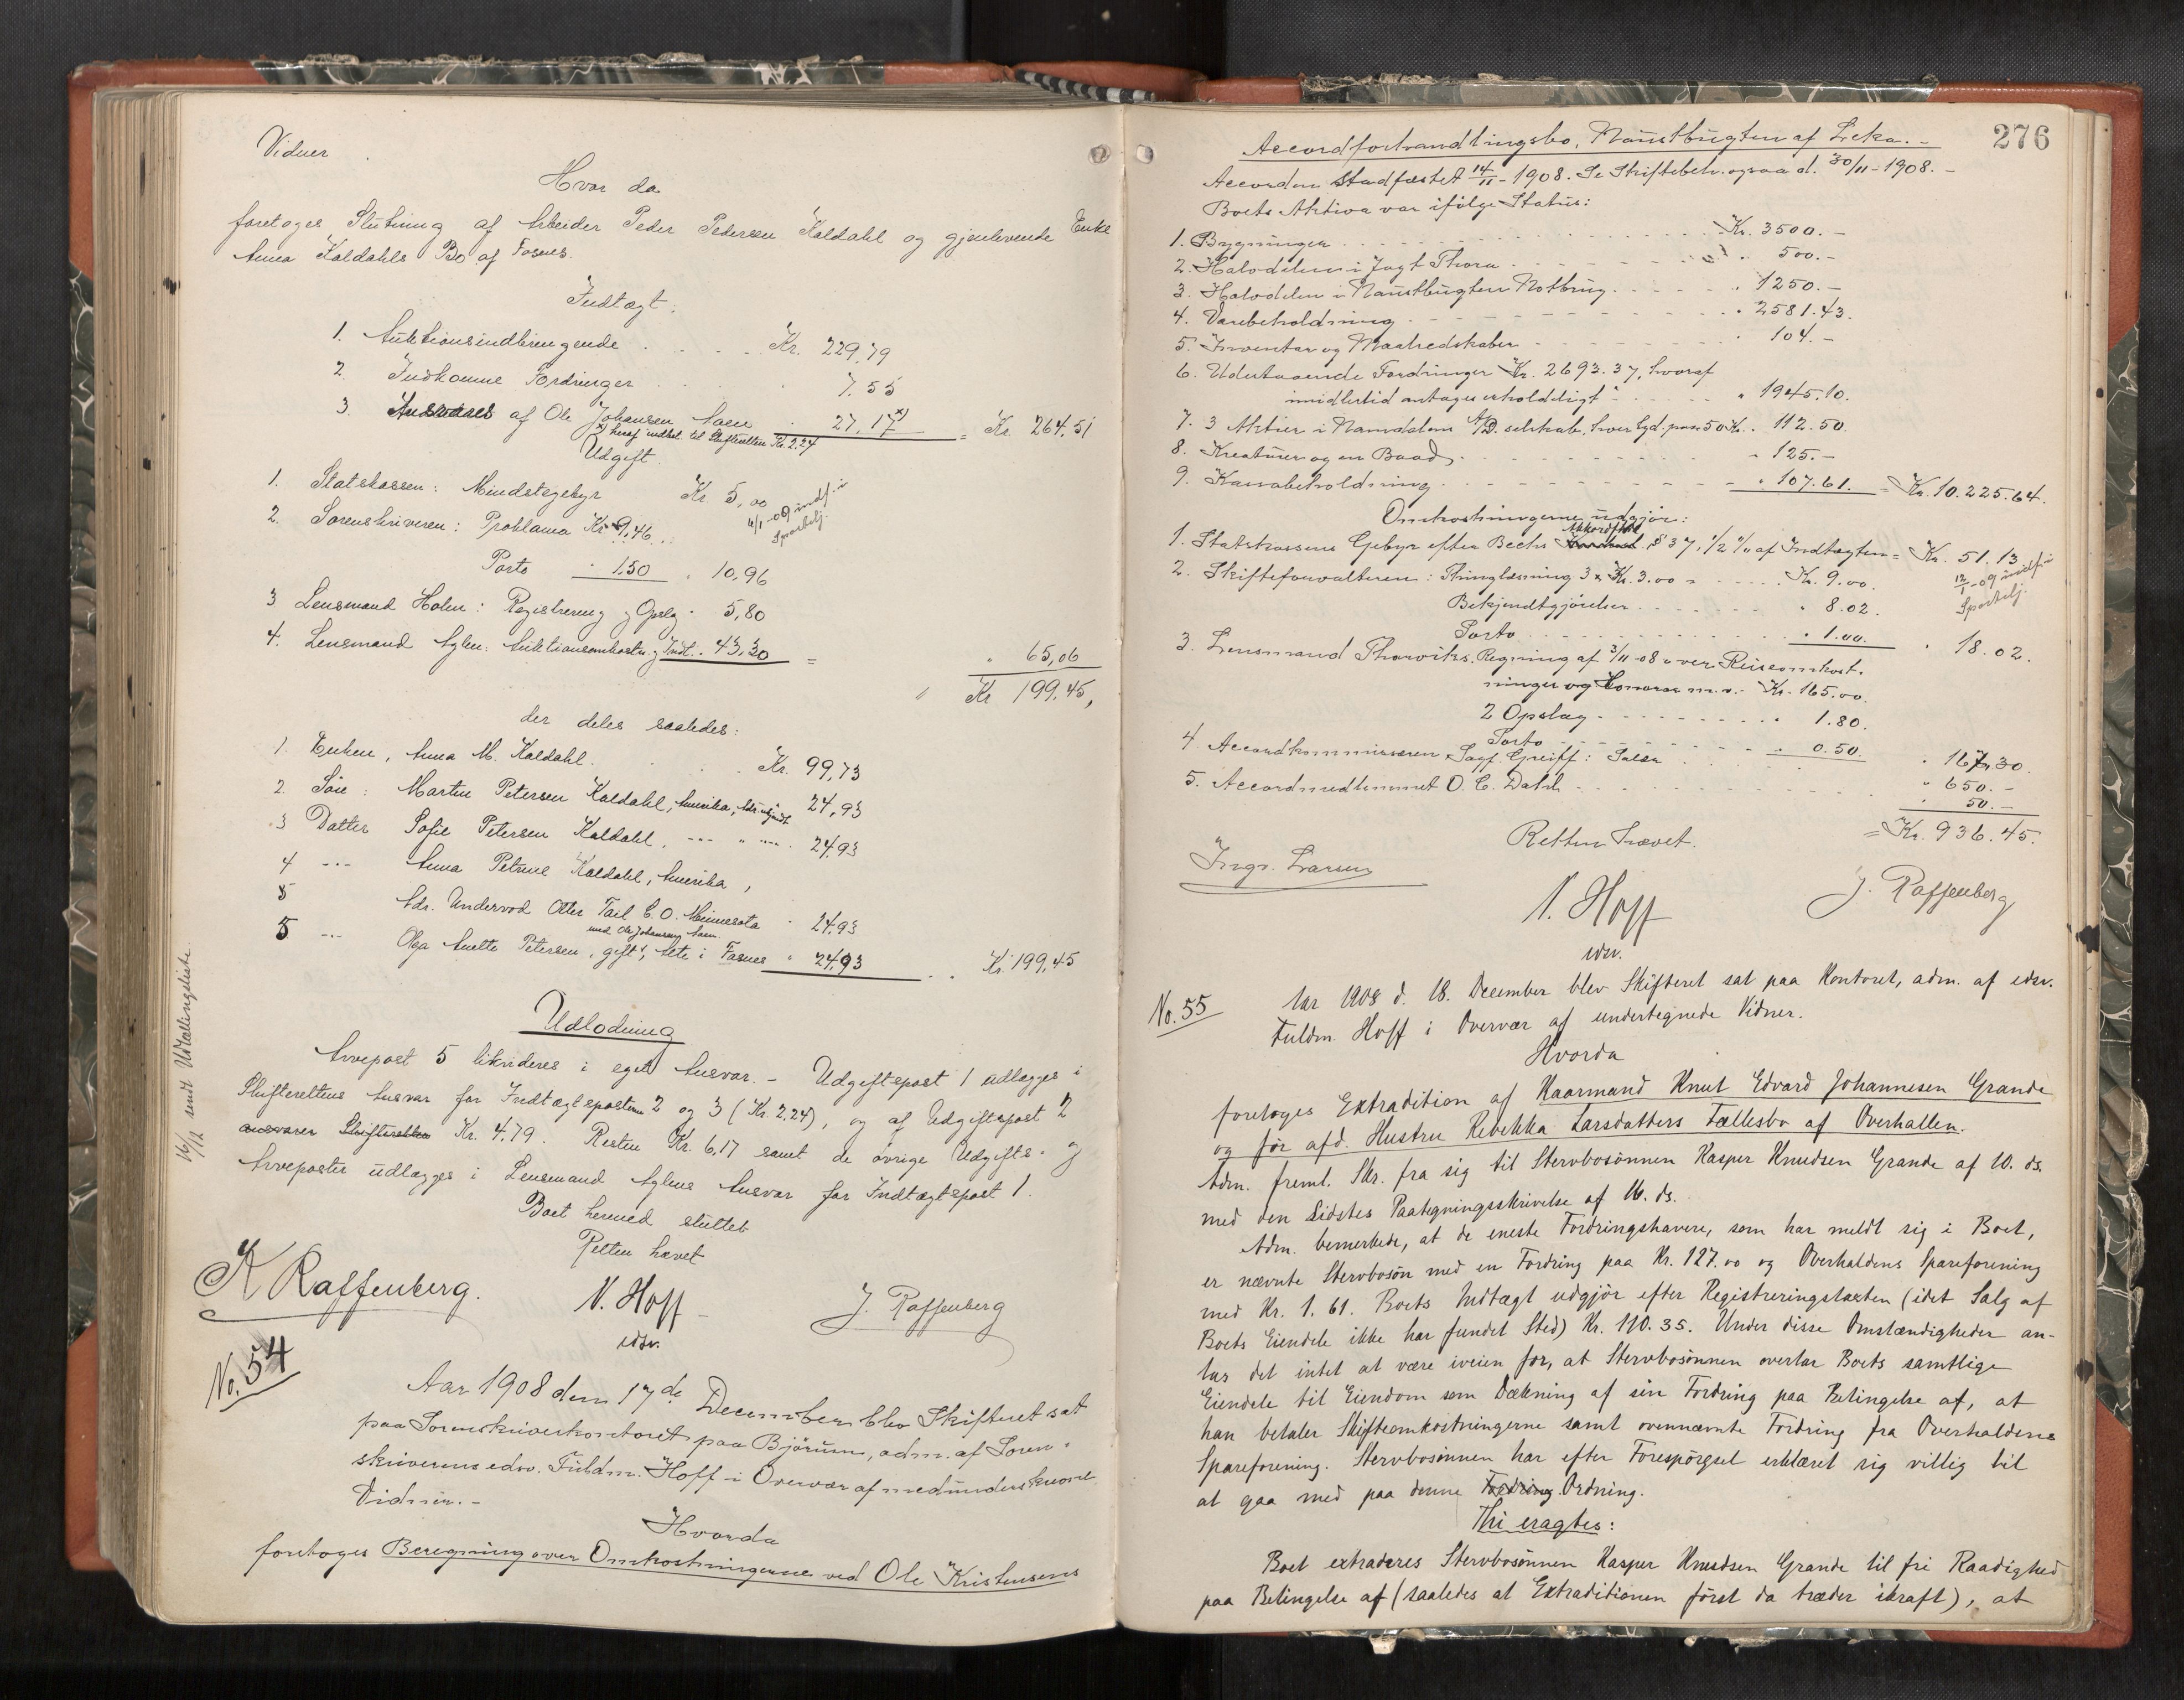 Vidner
Hvor da
foretoges Slutning af Arbeider Peder Pedersen Kaldahl og gjenlevende Enke
Anna Kaldahls Bo af Fosnes.
Indtægt:
1. Auktionsindbringende . . . . Kr. 229,79
2. Indkomne Fordringer . . . 7,55
3. Andvaret af Ole Johansen Aaen 27,17 x) = Kr. 264,51
x) heraf indbet. til Skifteretten Kr. 2,24
Udgift.
1. Statskassen: Mindstegebyr Kr. 5,00
4/1-09 indf. i
Sportelj.
2. Sorenskriveren: Proklama Kr. 9,46
Porto " 1,50 " 10,96
3 Lensmand Holm: Registrering og Opslg. " 5,80
4. Lensmand Aglen: Auktionsomkostn. og Indt. " 43,30 = " 65,06
" Kr 199,45,
der deles saaledes:
1. Enken, Anna M. Kaldahl. . . Kr. 99,73
2. Søn: Martin Petersen Kaldahl, Amerika, Adr. ukjendt 24,93
3 Datter Sofie Petersen Kaldahl, --- " --- 24,93
4 --- Anna Petrine Kaldahl, Amerika,
Adr. Undervod Otter Tail C.O. Minnesota " 24,93
med Ole Johansen Aaen
5 --- Olga Anette Petersen, gift, Sete i Fosnes " 24,93 . . Kr. 199,45
Udlodning
Arvepost 5 likvideres i eget Ansvar. - Udgiftspost 1 udlægges i
Skifterettens Ansvar for Indtægtsposterne 2 og 3 (Kr. 2,24), og af Udgiftspost 2
ansvarer Skifteretten Kr. 4,79. Resten Kr. 6,17 samt de øvrige Udgifts- og
Arveposter udlægges i Lensmand Aglens Ansvar for Indtægtspost 1.
Boet hermed sluttet
Retten hævet
K Raffenberg. N. Hoff J. Raffenberg
edsv.
16/12 sendt Udtællingsliste
No. 54
Aar 1908 den 17de December blev Skifteret sat
paa Sorenskriverkontoret paa Bjørum, adm. af Soren-
skriverens edsv. Fuldm. Hoff i Overvær af medunderskrevne
Vidner. -
Hvorda
foretoges Beregning over Omkostningerne ved Ole Kristensens
276
Accordforhandlingsbo, Naustbugten af Leka. -
Accorden stadfæstet 14/11 - 1908. Se Skiftebeh. ogsaa d. 30/11 - 1908. -
Boets Aktiva var ifølge Status:
1. Bygninger . . . . Kr. 3500. -
2. Halvdelen i Jagt Thora . . . . " 500. -
3. Halvdelen i Naustbugten Notbrug . . . . " 1250. -
4. Varebeholdning . . . . " 2581.43.
5. Inventar og Maaleredskaber . . . . " 104. -
6. Udestaaende Fordringer Kr. 2693.37, hvoraf
imidlertid antages erholdeligt . . . . " 1945.10.
7. 3 Aktier i Namdalens A/D. selskab, hver lyd. paa 50 Kr. . 112.50
8. Kreaturer og en Baad . . . . " 125. -
9. Kassabeholdning . . . . " 107.61. = Kr. 10.225.64.
Omkostningerne udgjør:
1. Statskassens Gebyr efter Bechs Akkordlov § 37, 1/2 % af Indtægten = Kr. 51.13
12/1-09 indf. i
Sportelj.
2. Skifteforvalteren: Thinglæsning 3 x Kr. 3.00 = . . . Kr. 9.00.
Bekjendtgjørelser . . . . " 8.02.
Porto . . . . " 1.00. " 18.02.
3. Lensmand Thorviks Regning af 3/11-08 over Reiseomkost-
ninger og Honorar m.v. - Kr. 165.00
2 Opslag . . . . " 1.80.
Porto . . . . " 0.50. " 167.30.
4 Accordkommissæren Sagf. Greiff: Salær . . . . " 650. -
5. Accordmedlemmet O. C. Dahl . . . . " 50. -
= Kr. 936.45.
Retten hævet.
Ingr. Larsen
N. Hoff J. Raffenberg
edsv.
No. 55
Aar 1908 d. 18. December blev Skifteret sat paa Kontoret, adm. af edsv.
Fuldm. Hoff i Overvær af undertegnede Vidner.
Hvorda
foretoges Extradition af Kaarmand Knut Edvard Johannesen Grande
og før afd. Hustru Rebekka Larsdatters Fællesbo af Overhallen.
Adm. freml. Skr. fra sig til Stervbosønnen Kasper Knudsen Grande af 10. ds.
med den Sidstes Paategningsskrivelse af 16. ds.
Adm. bemerkede, at de eneste Fordringshavere, som har meldt sig i Boet,
er nævnte Stervbosøn med en Fordring paa Kr. 127.00 og Overhaldens Spareforening
med Kr. 1.61. Boets Indtægt udgjør efter Registreringstaxten (idet Salg af
Boets Eiendele ikke har fundet Sted) Kr. 110.35. Under disse Omstændigheder an-
tas det intet at være iveien for, at Stervbosønnen overtar Boets samtlige
Eiendele til Eiendom som Dækning af sin Fordring paa Betingelse af, at
han betaler Skifteomkostningerne samt ovennævnte Fordring fra Overhaldens
Spareforening. Stervbosønnen har efter Forespørgsel erklæret sig villig til
at gaa med paa denne Fordring Ordning.
Thi eragtes:
Boet extraderes Stervbosønnen Kasper Knudsen Grande til fri Raadighed
paa Betingelse af (saaledes at Extraditionen først da træder ikraft), at